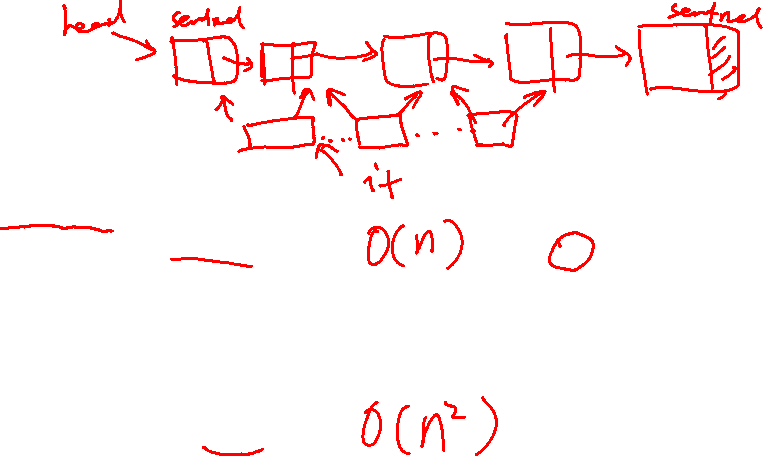 head sentinel sentinel
it
O(n)
O(n²)